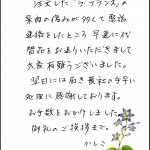 注文した「ラ・フランス」の
果肉の傷みが多くて電話
連絡をしたところ早速に代
替品をお送りいただきまして
大変有難うございました。
翌日には届き貴社の手早い
処理に感謝しております。
お手数をおかけしました。
御礼のご挨拶まで。
かしこ